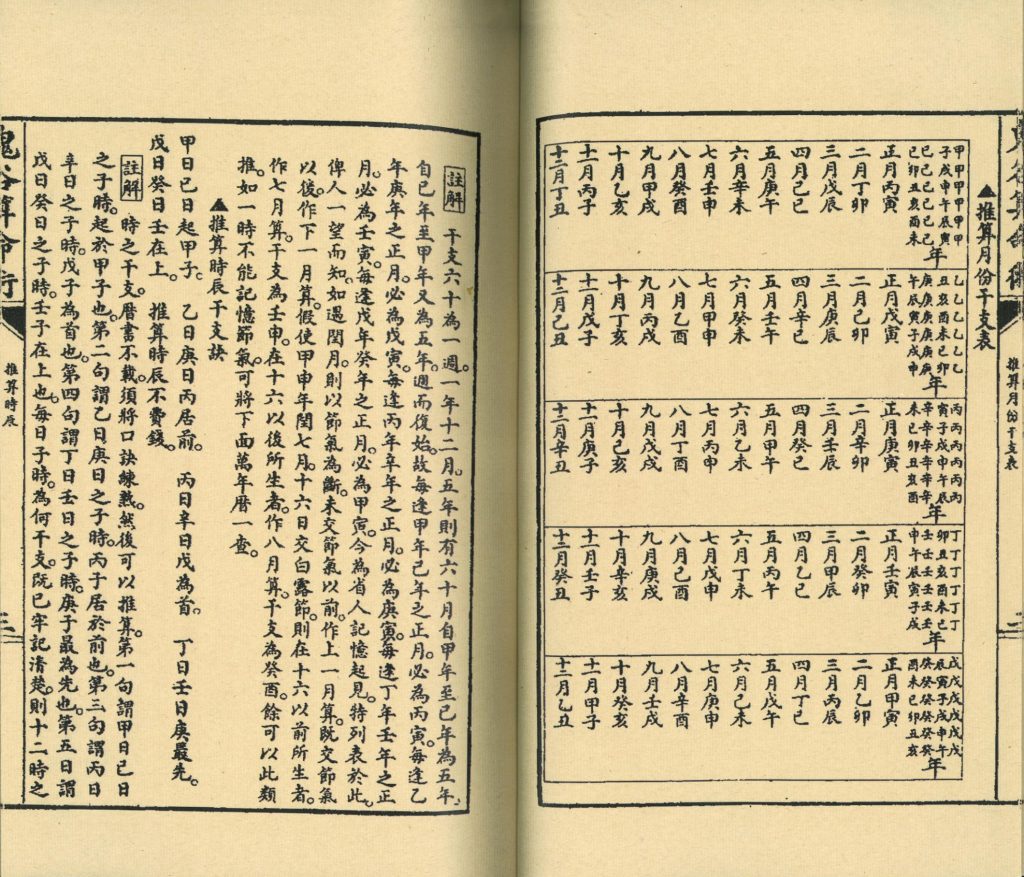 鬼谷算命術
推算月份干支表
二
▲推算月份干支表
甲甲甲甲甲甲
子戌申午辰寅
己己己己己己
巳卯丑亥酉未
年
正月丙寅
二月丁卯
三月戊辰
四月己巳
五月庚午
六月辛未
七月壬申
八月癸酉
九月甲戌
十月乙亥
十一月丙子
十二月丁丑
乙乙乙乙乙乙
丑亥酉未巳卯
庚庚庚庚庚庚
午辰寅子戌申
年
正月戊寅
二月己卯
三月庚辰
四月辛巳
五月壬午
六月癸未
七月甲申
八月乙酉
九月丙戌
十月丁亥
十一月戊子
十二月己丑
丙丙丙丙丙丙
寅子戌申午辰
辛辛辛辛辛辛
未巳卯丑亥酉
年
正月庚寅
二月辛卯
三月壬辰
四月癸巳
五月甲午
六月乙未
七月丙申
八月丁酉
九月戊戌
十月己亥
十一月庚子
十二月辛丑
丁丁丁丁丁丁
卯丑亥酉未巳
壬壬壬壬壬壬
申午辰寅子戌
年
正月壬寅
二月癸卯
三月甲辰
四月乙巳
五月丙午
六月丁未
七月戊申
八月己酉
九月庚戌
十月辛亥
十一月壬子
十二月癸丑
戊戊戊戊戊戊
辰寅子戌申午
癸癸癸癸癸癸
酉未巳卯丑亥
年
正月甲寅
二月乙卯
三月丙辰
四月丁巳
五月戊午
六月己未
七月庚申
八月辛酉
九月壬戌
十月癸亥
十一月甲子
十二月乙丑
註解 干支六十為一週。一年十二月。五年則有六十月自甲年至己年為五年。
自己年至甲年又為五年。週而復始。故每逢甲年己年之正月。必為丙寅。每逢乙
年庚年之正月。必為戊寅。每逢丙年辛年之正月。必為庚寅。每逢丁年壬年之正
月。必為壬寅。每逢戊年癸年之正月。必為甲寅。今為省人記憶起見。特列表於此。
俾人一望而知。如遇閏月。則以節氣為斷。未交節氣以前。作上一月算。既交節氣
以後。作下一月算。假使甲申年閏七月。十六日交白露節。則在十六以前所生者。
作七月算。干支為壬申。在十六以後所生者。作八月算。干支為癸酉。餘可以此類
推。如一時不能記憶節氣。可將下面萬年曆一查。
▲推算時辰干支訣
甲日己日起甲子。 乙日庚日丙居前。 丙日辛日戊為首。 丁日壬日庚最先。
戊日癸日壬在上。 推算時辰不費錢。
註解 時之干支。曆書不載。須將口訣練熟。然後可以推算。第一句謂甲日己日
之子時。起於甲子也。第二句謂乙日庚日之子時。丙子居於前也。第三句謂丙日
辛日之子時。戊子為首也。第四句謂丁日壬日之子時。庚子最為先也。第五日謂
戊日癸日之子時。壬子在上也。每日子時。為何干支。既已牢記清楚。則十二時之
鬼谷算命術
推算時辰
三